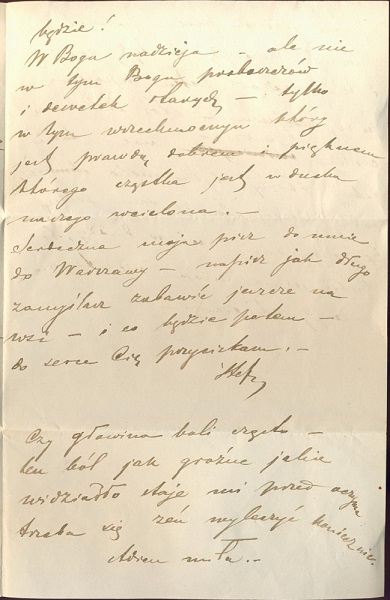 będzie!
W Bogu nadzieja – ale nie
w tym Bogu proboszczów
i dewotek starych – tylko
w tym wszechmocnym który
jest prawdą dobrem i pięknem
którego cząstka jest w duchu
naszego wcielona. –
Serdeczna moja pisz do mnie
do Warszawy – napisz jak długo
zamyślasz zabawić jeszcze na
wsi – i co będzie potem –
do serca Cię przyciskam. –
Stef
Czy główina boli często –
ten ból jak groźne jakie
widziadło staje mi przed oczyma
trzeba się zeń wyleczyć koniecznie.
Adieu miła. –